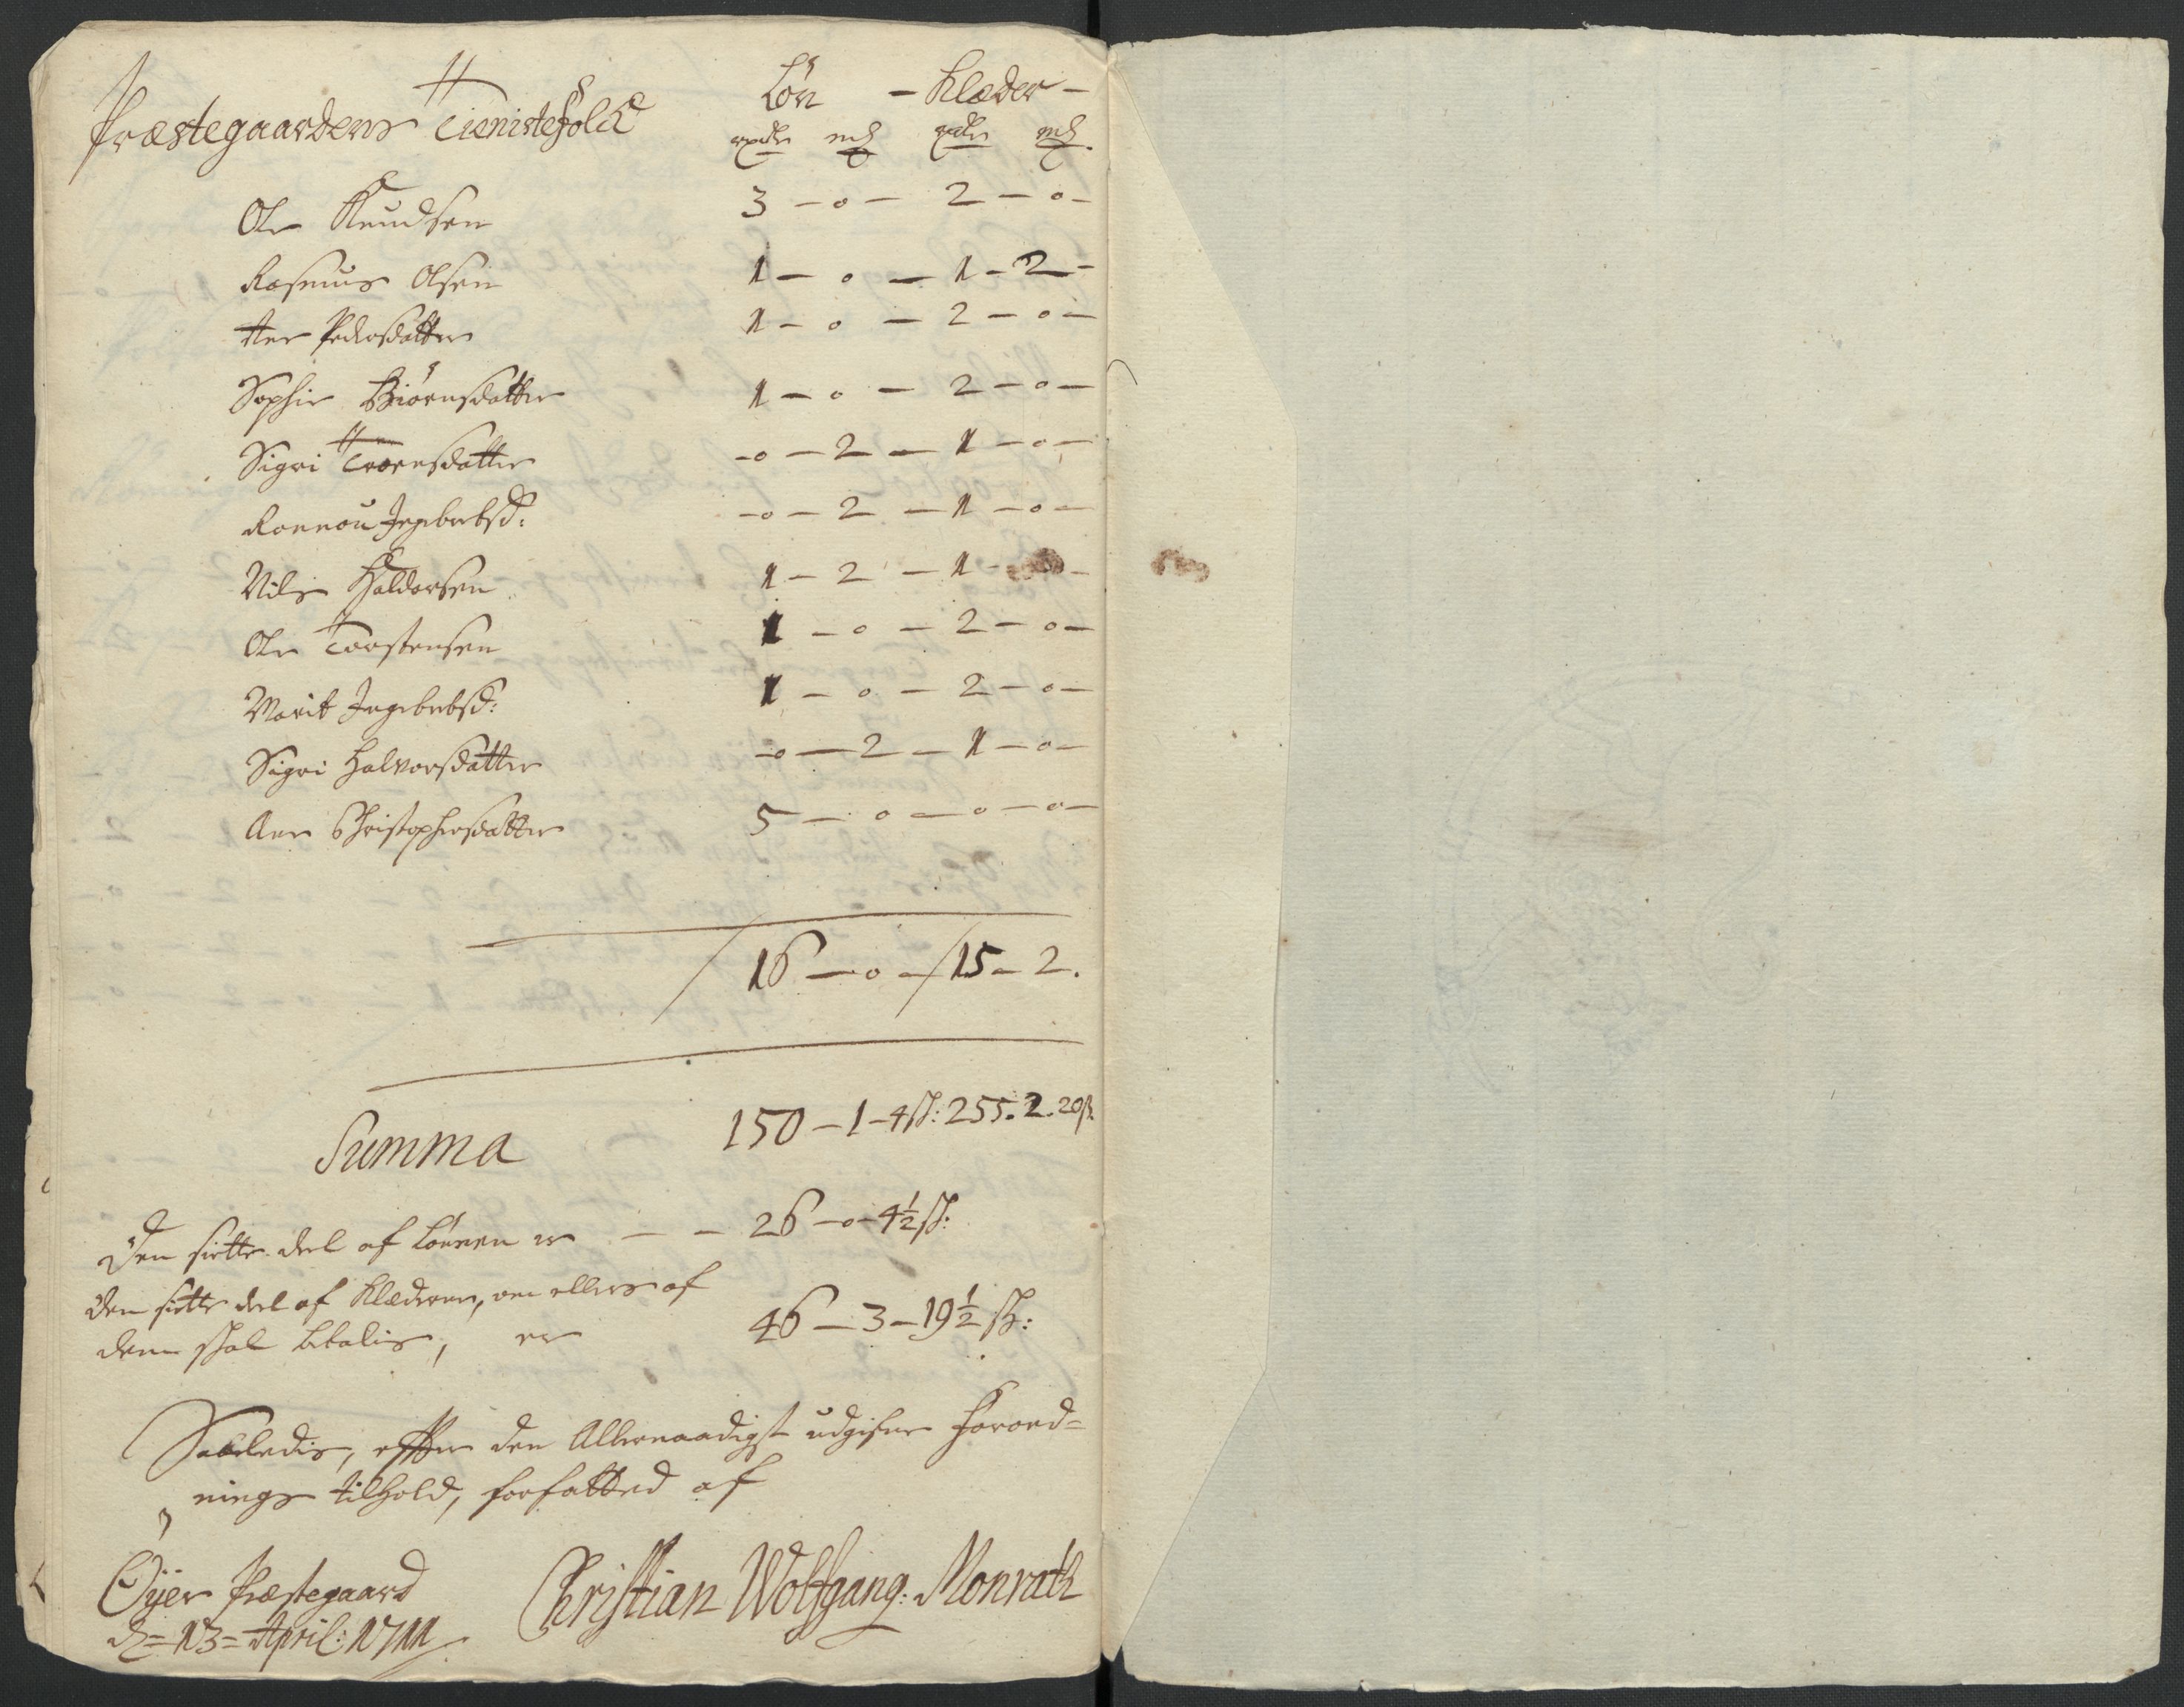 Løn – Klæder –
Præstegaardens Tienistefolk
rixdr mk rixdr mk.
Ole Knudsen 3 – 0 – 2 – 0 –
Rasmus Olsen 1 – 0 – 1 – 2 –
Ane Pedersdatter 1 – 0 – 2 – 0 –
Sophie Biørnsdatter 1 – 0 – 2 – 0 –
Sigri Torensdatter – 0 – 2 – 1 – 0 –
Ronnou Ingebretsd: – 0 – 2 – 1 – 0 –
Nils Haldorsen 1 – 2 – 1 –
Ole Torstensen 1 – 0 – 2 – 0 –
Marit Ingebretsd: 1 – 0 – 2 – 0 –
Sigri Halvorsdatter – 0 – 2 – 1 – 0 –
Ane Christophersdatter 5 – 0 – 0 – 0 –
/ 16 – 0 – / 15 – 2.
Summa 150 – 1 – 4 ß: 255. 2. 20 ß.
Den siette deel af Lønnen er – – 26 – 0 – 4½ ß:
Den siette deel af Klæderne, om ellers af
dem skal betalis, er 46 – 3 – 19½ ß:
Saaledis, efter den Allernaadigst udgifne Forord=
nings tilhold, forfatted af
Øyer Præstegaard Christian Wolfgang: Monrath
d= 13= April: 1711